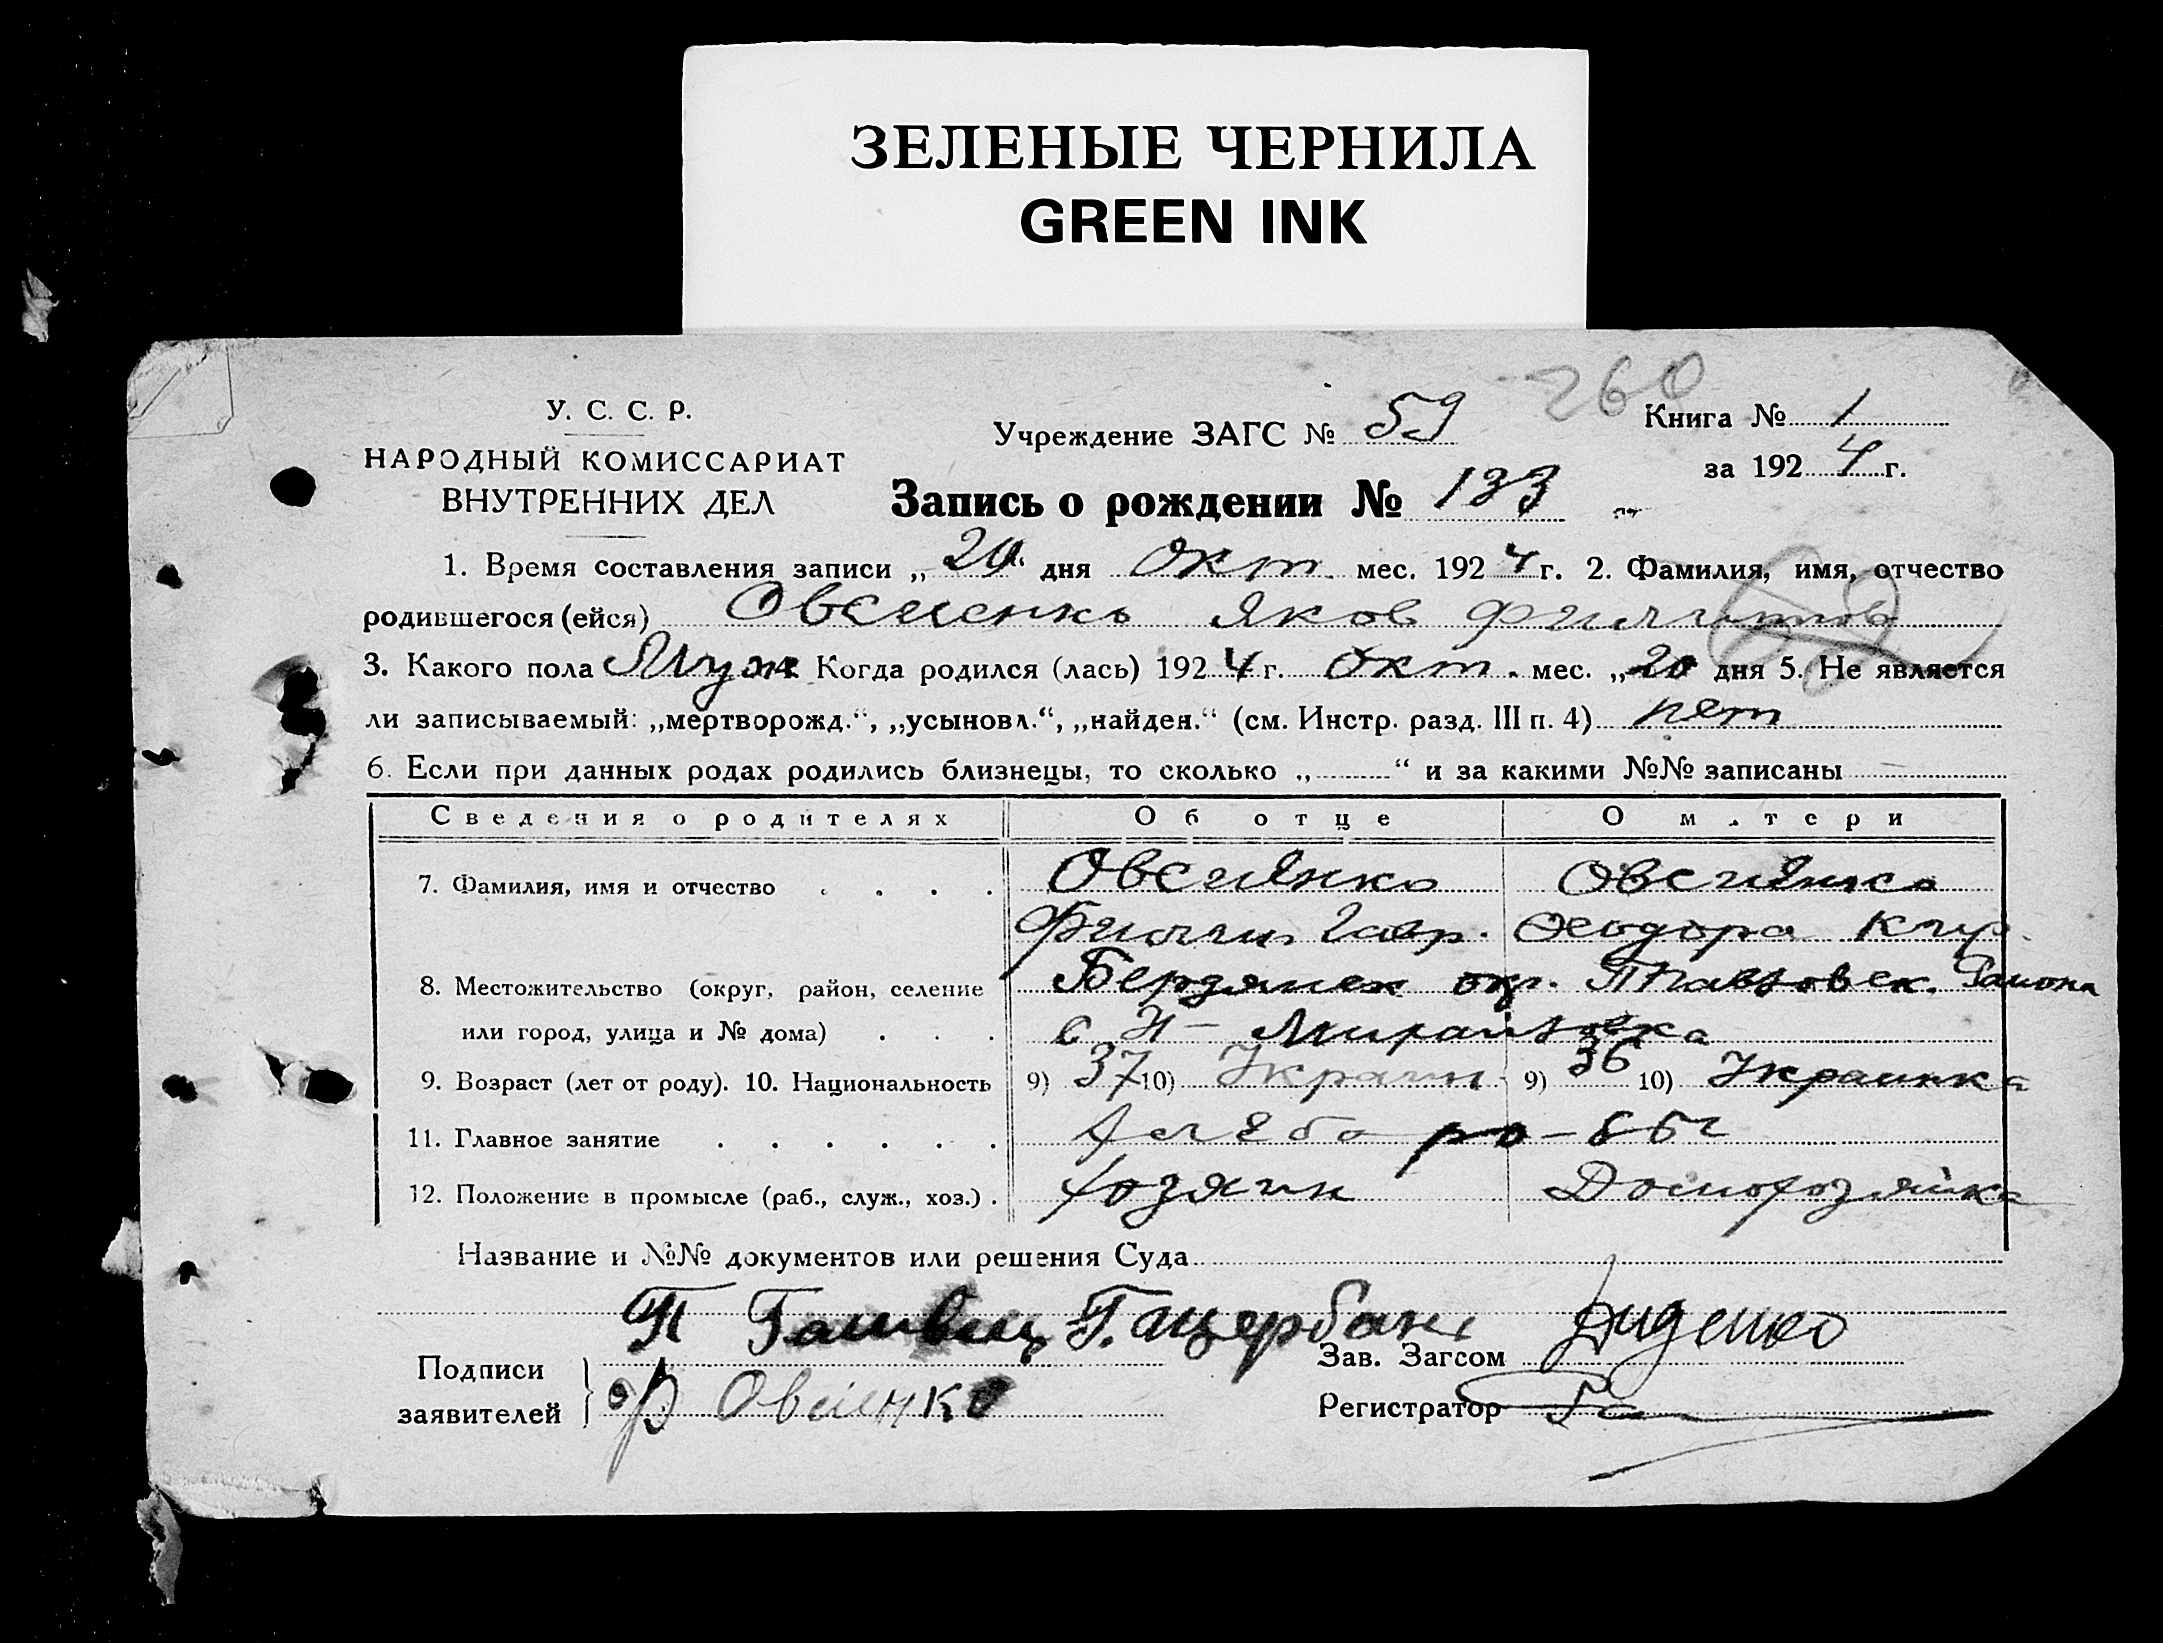 ЗЕЛЕНЫЕ ЧЕРНИЛА
GREEN INK
260
У. С. С. Р.
НАРОДНЫЙ КОМИССАРИАТ
ВНУТРЕННИХ ДЕЛ
Учреждение ЗАГС № 59
Книга № 1
за 1924 г.
Запись о рождении № 133
1. Время составления записи „20“ дня Окт. мес. 1924 г. 2. Фамилия, имя, отчество
родившегося (ейся) Овсиенко Яков Филиппов
3. Какого пола Муж Когда родился (лась) 1924 г. Окт. мес. „20 дня 5. Не является
ли записываемый: „мертворожд.“, „усыновл.“, „найден.“ (см. Инстр. разд. III п. 4) нет
6. Если при данных родах родились близнецы, то сколько „ “ и за какими №№ записаны —
Сведения о родителях Об отце О матери
7. Фамилия, имя и отчество . . . . Овсиенко Овсиенко
Филип Гавр. Феодора Кир.
8. Местожительство (округ, район, селение Бердянск окр. Района
или город, улица и № дома) . . . с Н-
9. Возраст (лет от роду). 10. Национальность 9) 37 10) Украин. 9) 36 10) Украинка
11. Главное занятие . . . . . .
12. Положение в промысле (раб., служ., хоз.) . Хозяин Домохозяйка
Название и №№ документов или решения Суда
П Г. Щербак Диденко
Подписи
заявителей
Ф Овсиенко
Зав. Загсом
Регистратор